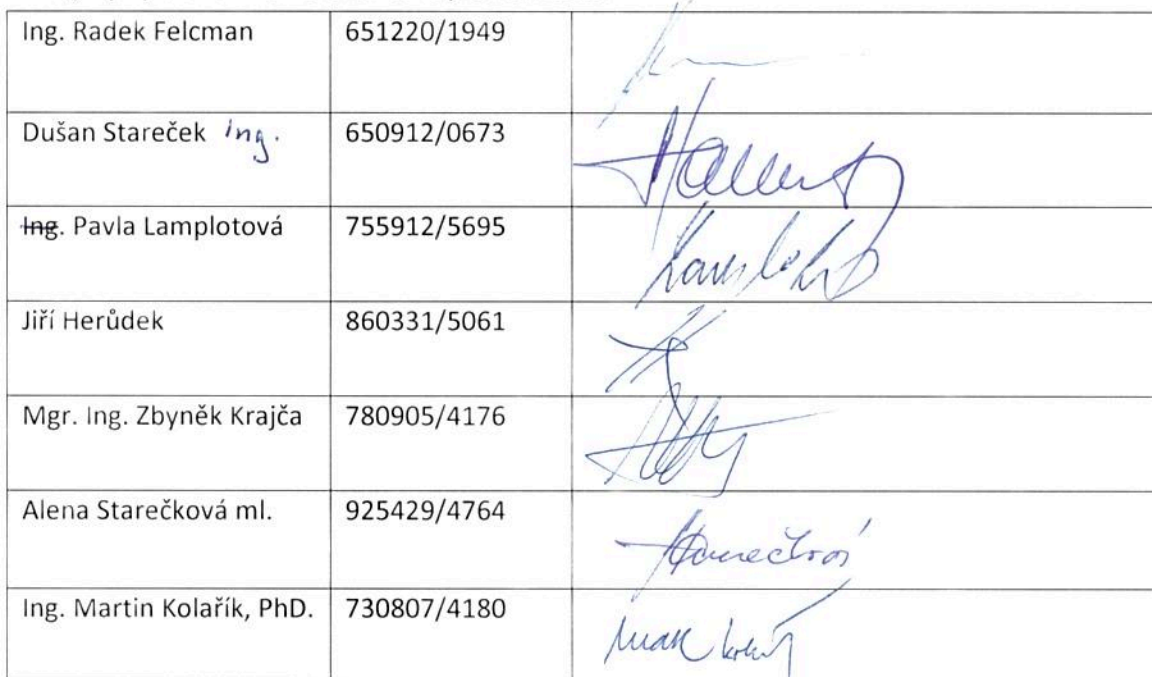 Ing. Radek Felcman 651220/1949
Dušan Stareček Ing. 650912/0673
Ing. Pavla Lamplotová 755912/5695
Jiří Herůdek 860331/5061
Mgr. Ing. Zbyněk Krajča 780905/4176
Alena Starečková ml. 925429/4764
Ing. Martin Kolařík, PhD. 730807/4180